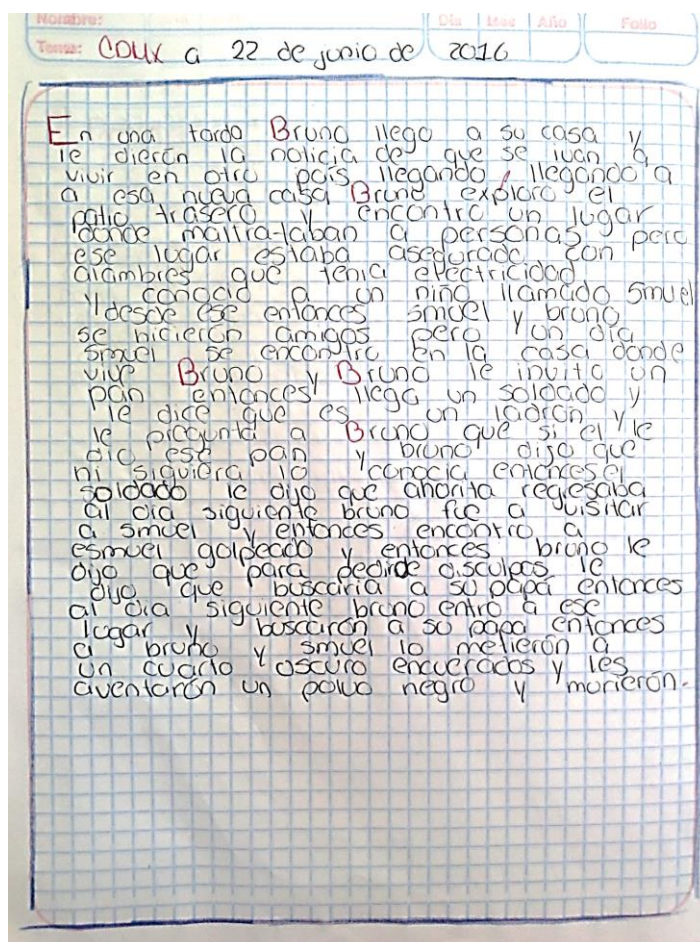 Nombre: Día Mes Año Folio
Tema: CDMX a 22 de junio de 2016
En una tarde Bruno llego a su casa y
le dierón la noticia de que se iuan a
vivir en otro pais llegando llegando a
a esa nueva casa Bruno exploro el
patio trasero y encontro un lugar
donde maltrataban a personas pero
ese lugar estaba asegurado con
alambres que tenia electricidad
y conocio a un niño llamado Smuel
desde ese entonces smuel y bruno
se hicierón amigos pero un dia
Smuel se encontro en la casa donde
vive Bruno y Bruno le invito un
pan entonces llega un soldado y
le dice que es un ladrón y
le pregunta a Bruno que si el le
dio ese pan y bruno dijo que
ni siquiera lo conocia entonces el
soldado le dijo que ahorita regresaba
al dia siguiente bruno fue a visitar
a smuel y entonces encontro a
esmuel golpeado y entonces bruno le
dijo que para pedirde disculpas le
dijo que buscaria a su papá entonces
al dia siguiente bruno entro a ese
lugar y buscarón a su papá entonces
a bruno y smuel lo metierón a
un cuarto oscuro encuerados y les
aventarón un polvo negro y morierón.